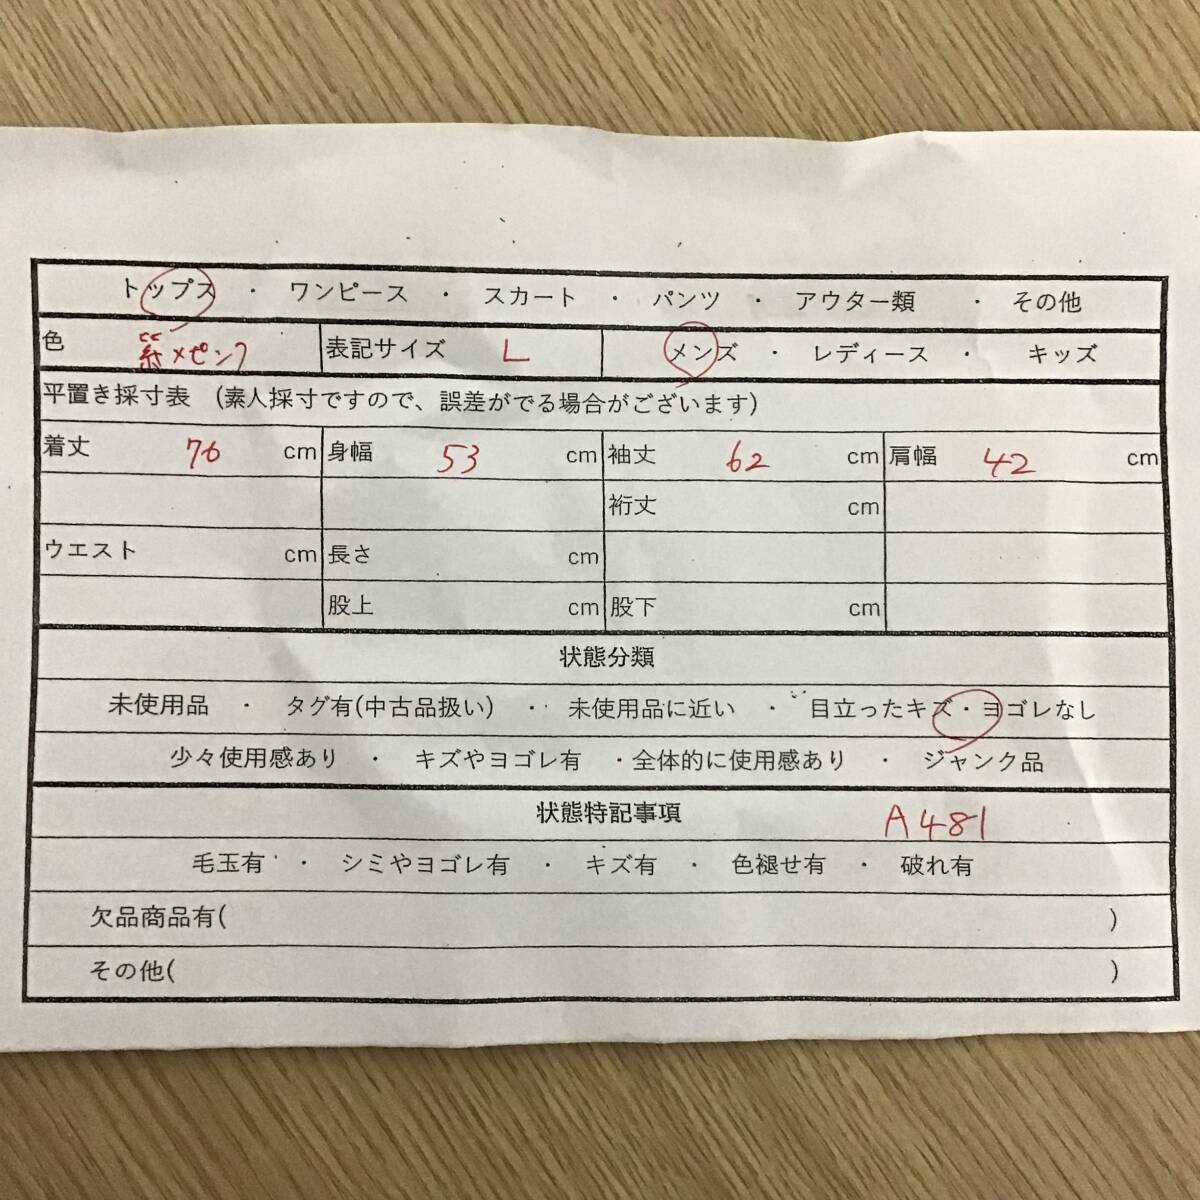 トップス ・ ワンピース ・ スカート ・ パンツ ・ アウター類 ・ その他
色 紫×ピンク 表記サイズ L メンズ ・ レディース ・ キッズ
平置き採寸表 (素人採寸ですので、誤差がでる場合がございます)
着丈 76 cm 身幅 53 cm 袖丈 62 cm 肩幅 42 cm
裄丈 cm
ウエスト cm 長さ cm
股上 cm 股下 cm
状態分類
未使用品 ・ タグ有(中古品扱い) ・・ 未使用品に近い ・ 目立ったキズ・ヨゴレなし
少々使用感あり ・ キズやヨゴレ有 ・全体的に使用感あり ・ ジャンク品
状態特記事項 A481
毛玉有 ・ シミやヨゴレ有 ・ キズ有 ・ 色褪せ有 ・ 破れ有
欠品商品有( )
その他( )